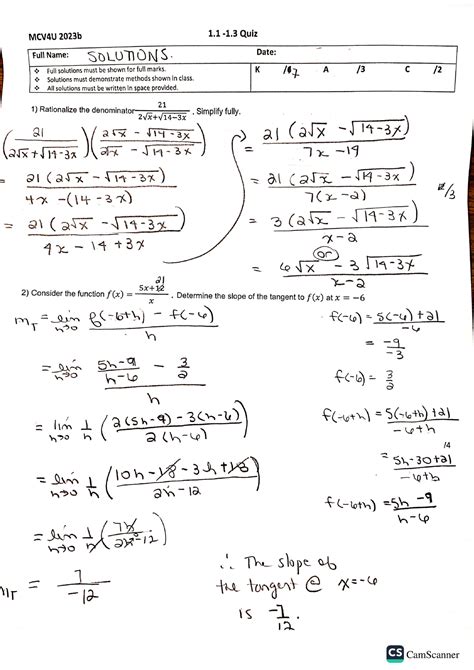 MCV4U 2023b
1.1 -1.3 Quiz
Full Name: SOLUTIONS.
Date:
❖ Full solutions must be shown for full marks.
❖ Solutions must demonstrate methods shown in class.
❖ All solutions must be written in space provided.
K /7 A /3 C /2
1) Rationalize the denominator 21/(2√x+√14−3x) . Simplify fully.
(21/(2√x+√14-3x)) ((2√x - √14-3x)/(2√x - √14-3x))
= 21(2√x - √14-3x)/(4x -(14-3x))
= 21(2√x - √14-3x)/(4x - 14 + 3x)
= 21(2√x - √14-3x)/(7x - 14)
= 21(2√x - √14-3x)/(7(x-2))
/3
= 3(2√x - √14-3x)/(x-2)
or
= 6√x - 3√14-3x/(x-2)
21
2) Consider the function f(x) = (5x+12)/x . Determine the slope of the tangent to f(x) at x = −6
mT = lim h→0 (f(-6+h) - f(-6))/h
= lim h→0 ((5h-9)/(h-6) - 3/2)/h
= lim h→0 1/h (2(5h-9) - 3(h-6))/(2(h-6))
= lim h→0 1/h (10h-18-3h+18)/(2h-12)
= lim h→0 1/h (7h/(2h-12))
mT = 7/-12
f(-6) = (5(-6)+21)/-6
= -9/-3
f(-6) = 3/2
f(-6+h) = (5(-6+h)+21)/(-6+h)
= (5h-30+21)/(-6+h)
f(-6+h) = (5h-9)/(h-6)
∴ The slope of
the tangent @ x=-6
is -7/12.
CS CamScanner